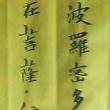 波羅密多
在菩薩·